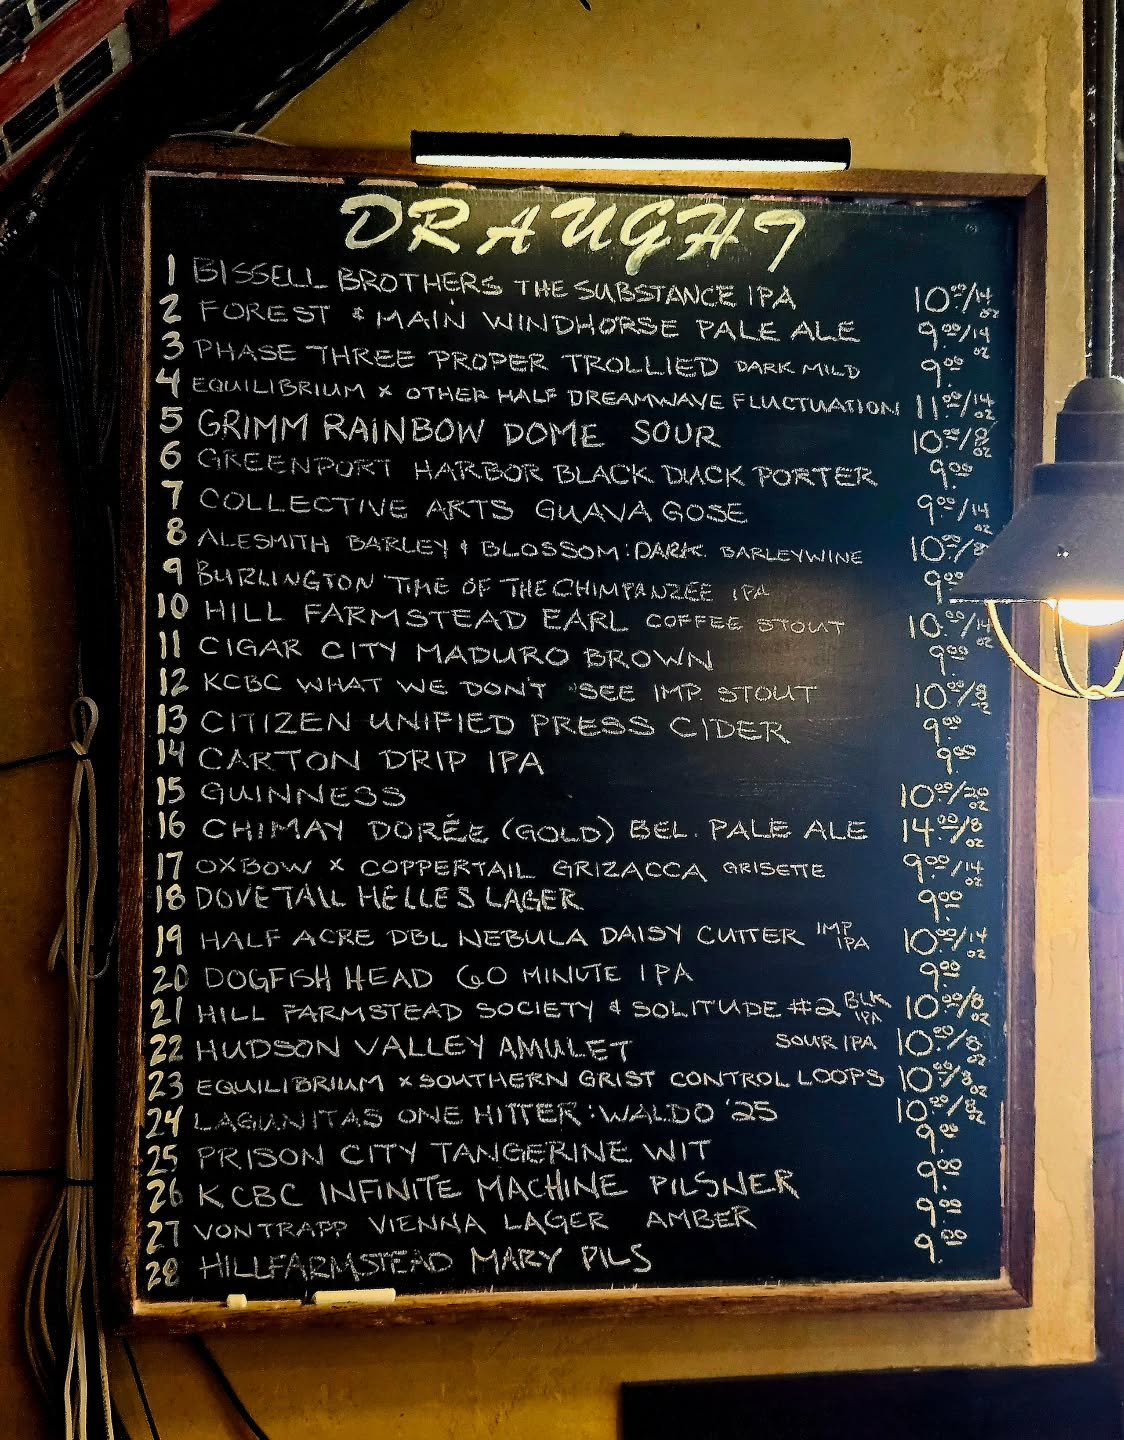 DRAUGHT
1 BISSELL BROTHERS THE SUBSTANCE IPA 10.00/14 oz
2 FOREST & MAIN WINDHORSE PALE ALE 9.00/14 oz
3 PHASE THREE PROPER TROLLIED DARK MILD 9.00
4 EQUILIBRIUM x OTHER HALF DREAMWAVE FLUCTUATION 11.00/14 oz
5 GRIMM RAINBOW DOME SOUR 10.00/8 oz
6 GREENPORT HARBOR BLACK DUCK PORTER 9.00
7 COLLECTIVE ARTS GUAVA GOSE 9.00/14 oz
8 ALESMITH BARLEY & BLOSSOM: DARK BARLEYWINE 10.00/8
9 BURLINGTON TIME OF THE CHIMPANZEE IPA 9.00
10 HILL FARMSTEAD EARL COFFEE STOUT 10.00/14 oz
11 CIGAR CITY MADURO BROWN 9.00
12 KCBC WHAT WE DON'T SEE IMP. STOUT 10.00/8 oz
13 CITIZEN UNIFIED PRESS CIDER 9.00
14 CARTON DRIP IPA 9.00
15 GUINNESS 10.00/20 oz
16 CHIMAY DORÉE (GOLD) BEL. PALE ALE 14.00/8 oz
17 OXBOW x COPPERTAIL GRIZACCA GRISETTE 9.00/14 oz
18 DOVETAIL HELLES LAGER 9.00
19 HALF ACRE DBL NEBULA DAISY CUTTER IMP IPA 10.00/14 oz
20 DOGFISH HEAD 60 MINUTE IPA 9.00
21 HILL FARMSTEAD SOCIETY & SOLITUDE #2 BLK IPA 10.00/8 oz
22 HUDSON VALLEY AMULET SOUR IPA 10.00/8 oz
23 EQUILIBRIUM x SOUTHERN GRIST CONTROL LOOPS 10.00/8 oz
24 LAGUNITAS ONE HITTER: WALDO '25 10.00/8 oz
25 PRISON CITY TANGERINE WIT 9.00
26 KCBC INFINITE MACHINE PILSNER 9.00
27 VON TRAPP VIENNA LAGER AMBER 9.00
28 HILL FARMSTEAD MARY PILS 9.00